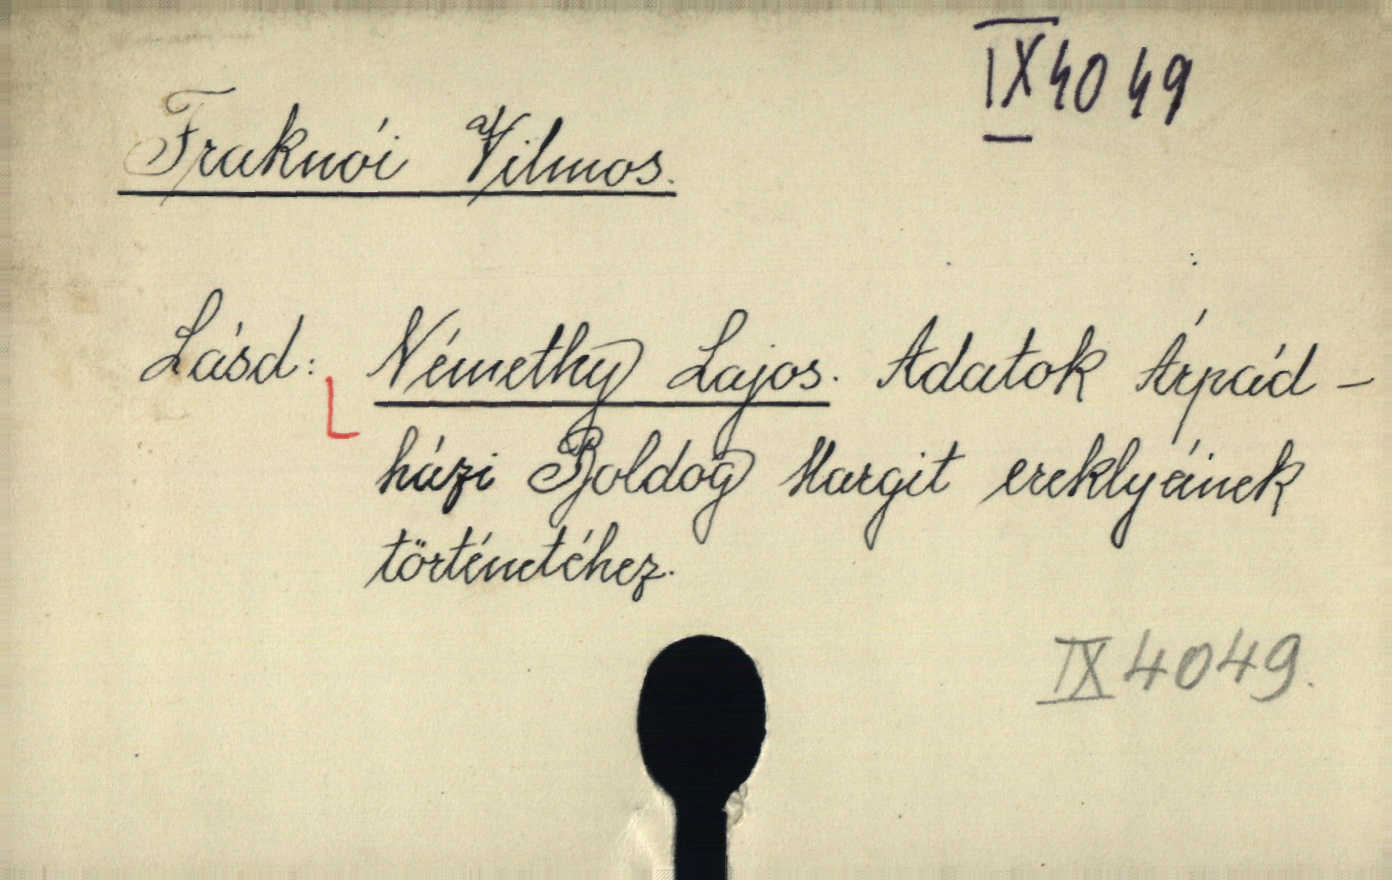 IX 4049
Fraknói Vilmos.
Lásd: Némethy Lajos. Adatok Árpád-
házi Boldog Margit ereklyéinek
történetéhez.
IX 4049.